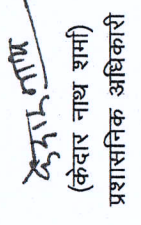 केदार नाथ
(केदार नाथ शर्मा)
प्रशासनिक अधिकारी